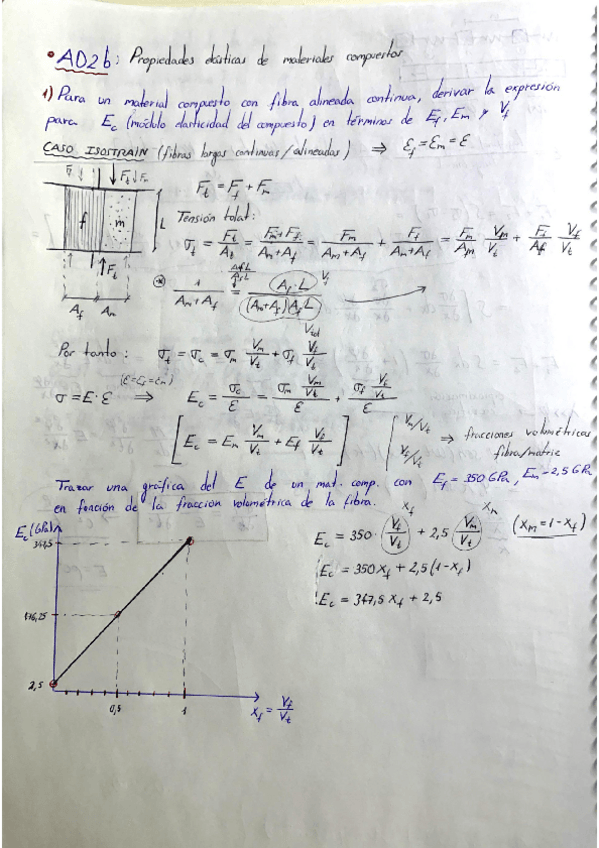 • AD2b: Propiedades elásticas de materiales compuestos
1) Para un material compuesto con fibra alineada continua, derivar la expresión
para E_c (módulo elasticidad del compuesto) en términos de E_f, E_m y V_f
CASO ISOSTRAIN (fibras largas continuas/alineadas) ⇒ ε_f = ε_m = ε
F_f ↓ ↓ ↓F_t ↓F_m
F_t = F_f + F_m
f m L
Tensión total:
σ_t = F_t/A_t = (F_m+F_f)/(A_m+A_f) = F_m/(A_m+A_f) + F_f/(A_m+A_f) = F_m/A_m · V_m/V_t + F_f/A_f · V_f/V_t
↑F_t
A_f A_m
⊛ 1/(A_m+A_f) = A_f·L/((A_m+A_f)A_f L) V_f
V_tot
Por tanto: σ_t = σ_c = σ_m V_m/V_t + σ_f V_f/V_t
(ε=ε_f=ε_m)
σ = E·ε ⇒ E_c = σ_c/ε = (σ_m V_m/V_t)/ε + (σ_f V_f/V_t)/ε
[E_c = E_m V_m/V_t + E_f V_f/V_t] [V_m/V_t V_f/V_t ⇒ fracciones volumétricas
fibra/matriz
Trazar una gráfica del E de un mat. comp. con E_f = 350 GPa, E_m = 2,5 GPa
en función de la fracción volumétrica de la fibra.
x_f x_m
E_c = 350 · V_f/V_t + 2,5 V_m/V_t (x_m = 1-x_f)
E_c = 350 x_f + 2,5 (1-x_f)
E_c = 347,5 x_f + 2,5
E_c (GPa)
176,25
2,5
0,5 1 x_f = V_f/V_t